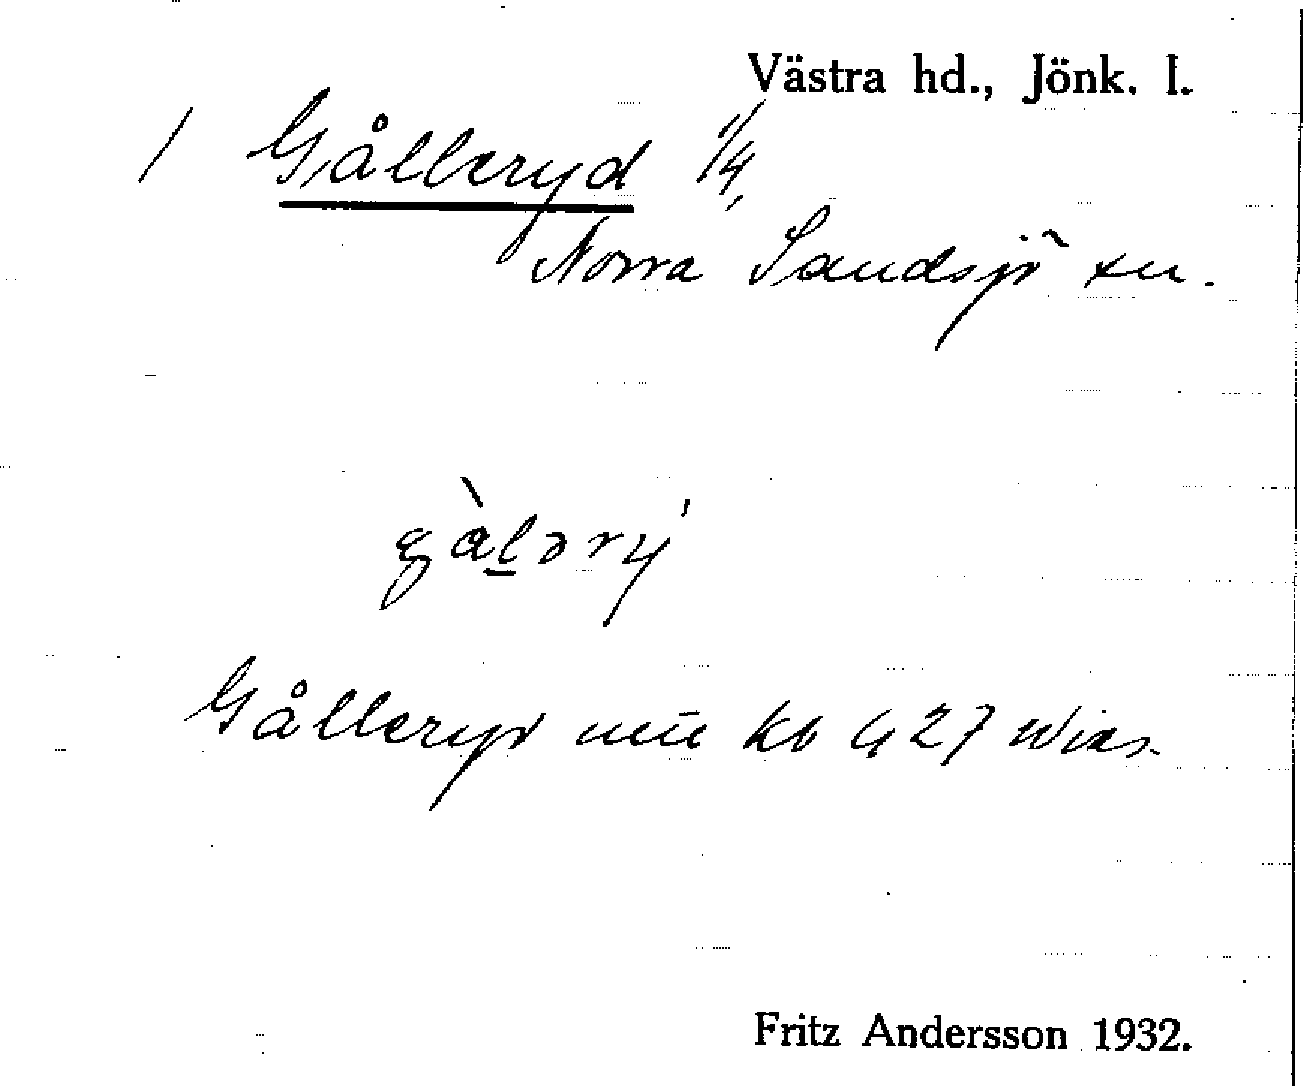 Västra hd., Jönk. l.
/ Gålleryd 1/4,
Norra Sandsjö sn.
gàlәry'
Gålleryd kb 427
Fritz Andersson 1932.